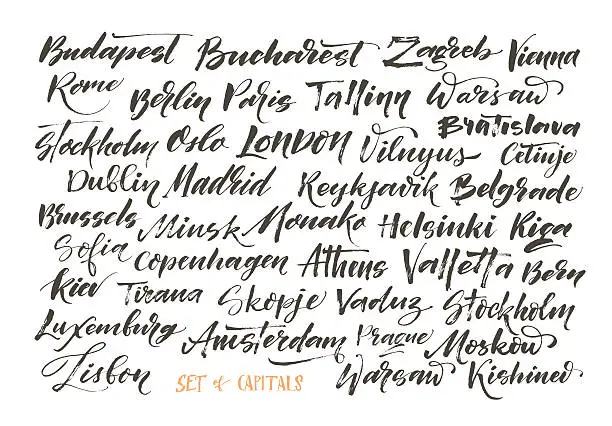 Budapest Bucharest Zagreb Vienna
Rome Berlin Paris Tallinn Warsaw
Bratislava
Stockholm Oslo LONDON Vilnyus Cetinje
Dublin Madrid Reykjavik Belgrade
Brussels Minsk Monako Helsinki Riga
Sofia Copenhagen Athens Valletta Bern
Kiev Tirana Skopje Vaduz Stockholm
Luxemburg Amsterdam Prague Moskow
Lisbon SET of CAPITALS Warsaw Kishinev